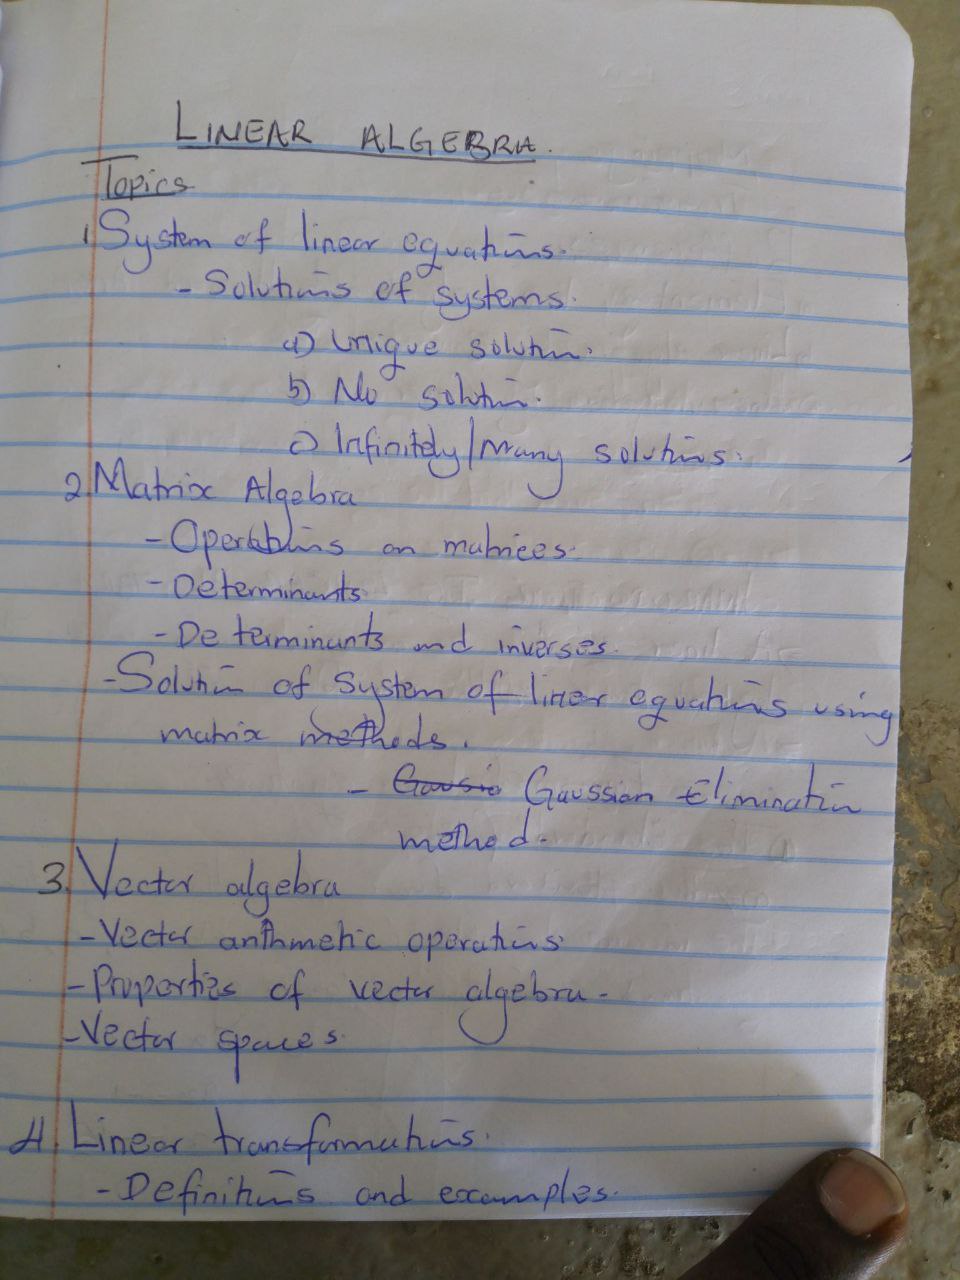 LINEAR ALGEBRA.
Topics
1 System of linear equations.
- Solutions of systems.
a) Unique solution.
b) No solution.
c) Infinitely/Many solutions.
2. Matrix Algebra
- Operations on matrices.
- Determinants.
- Determinants and inverses.
- Solution of System of linear equations using
matrix methods.
- Gaussian Elimination
method.
3. Vector algebra
- Vector arithmetic operations
- Properties of vector algebra.
- Vector spaces.
4. Linear transformations.
- Definitions and examples.